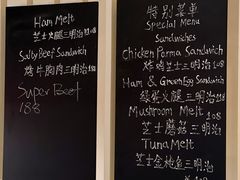 Ham Melt
芝士火腿三明治
Salty Beef Sandwich
烤牛胸肉三明治108
Super Beef
188
特别菜单
Special Menu
Sandwiches
Chicken Perma Sandwich
烤鸡芝士三明治108
Ham & Green Egg Sandwich
火腿三明治
Mushroom Melt
芝士蘑菇三明治
Tuna Melt
芝士金枪鱼三明治